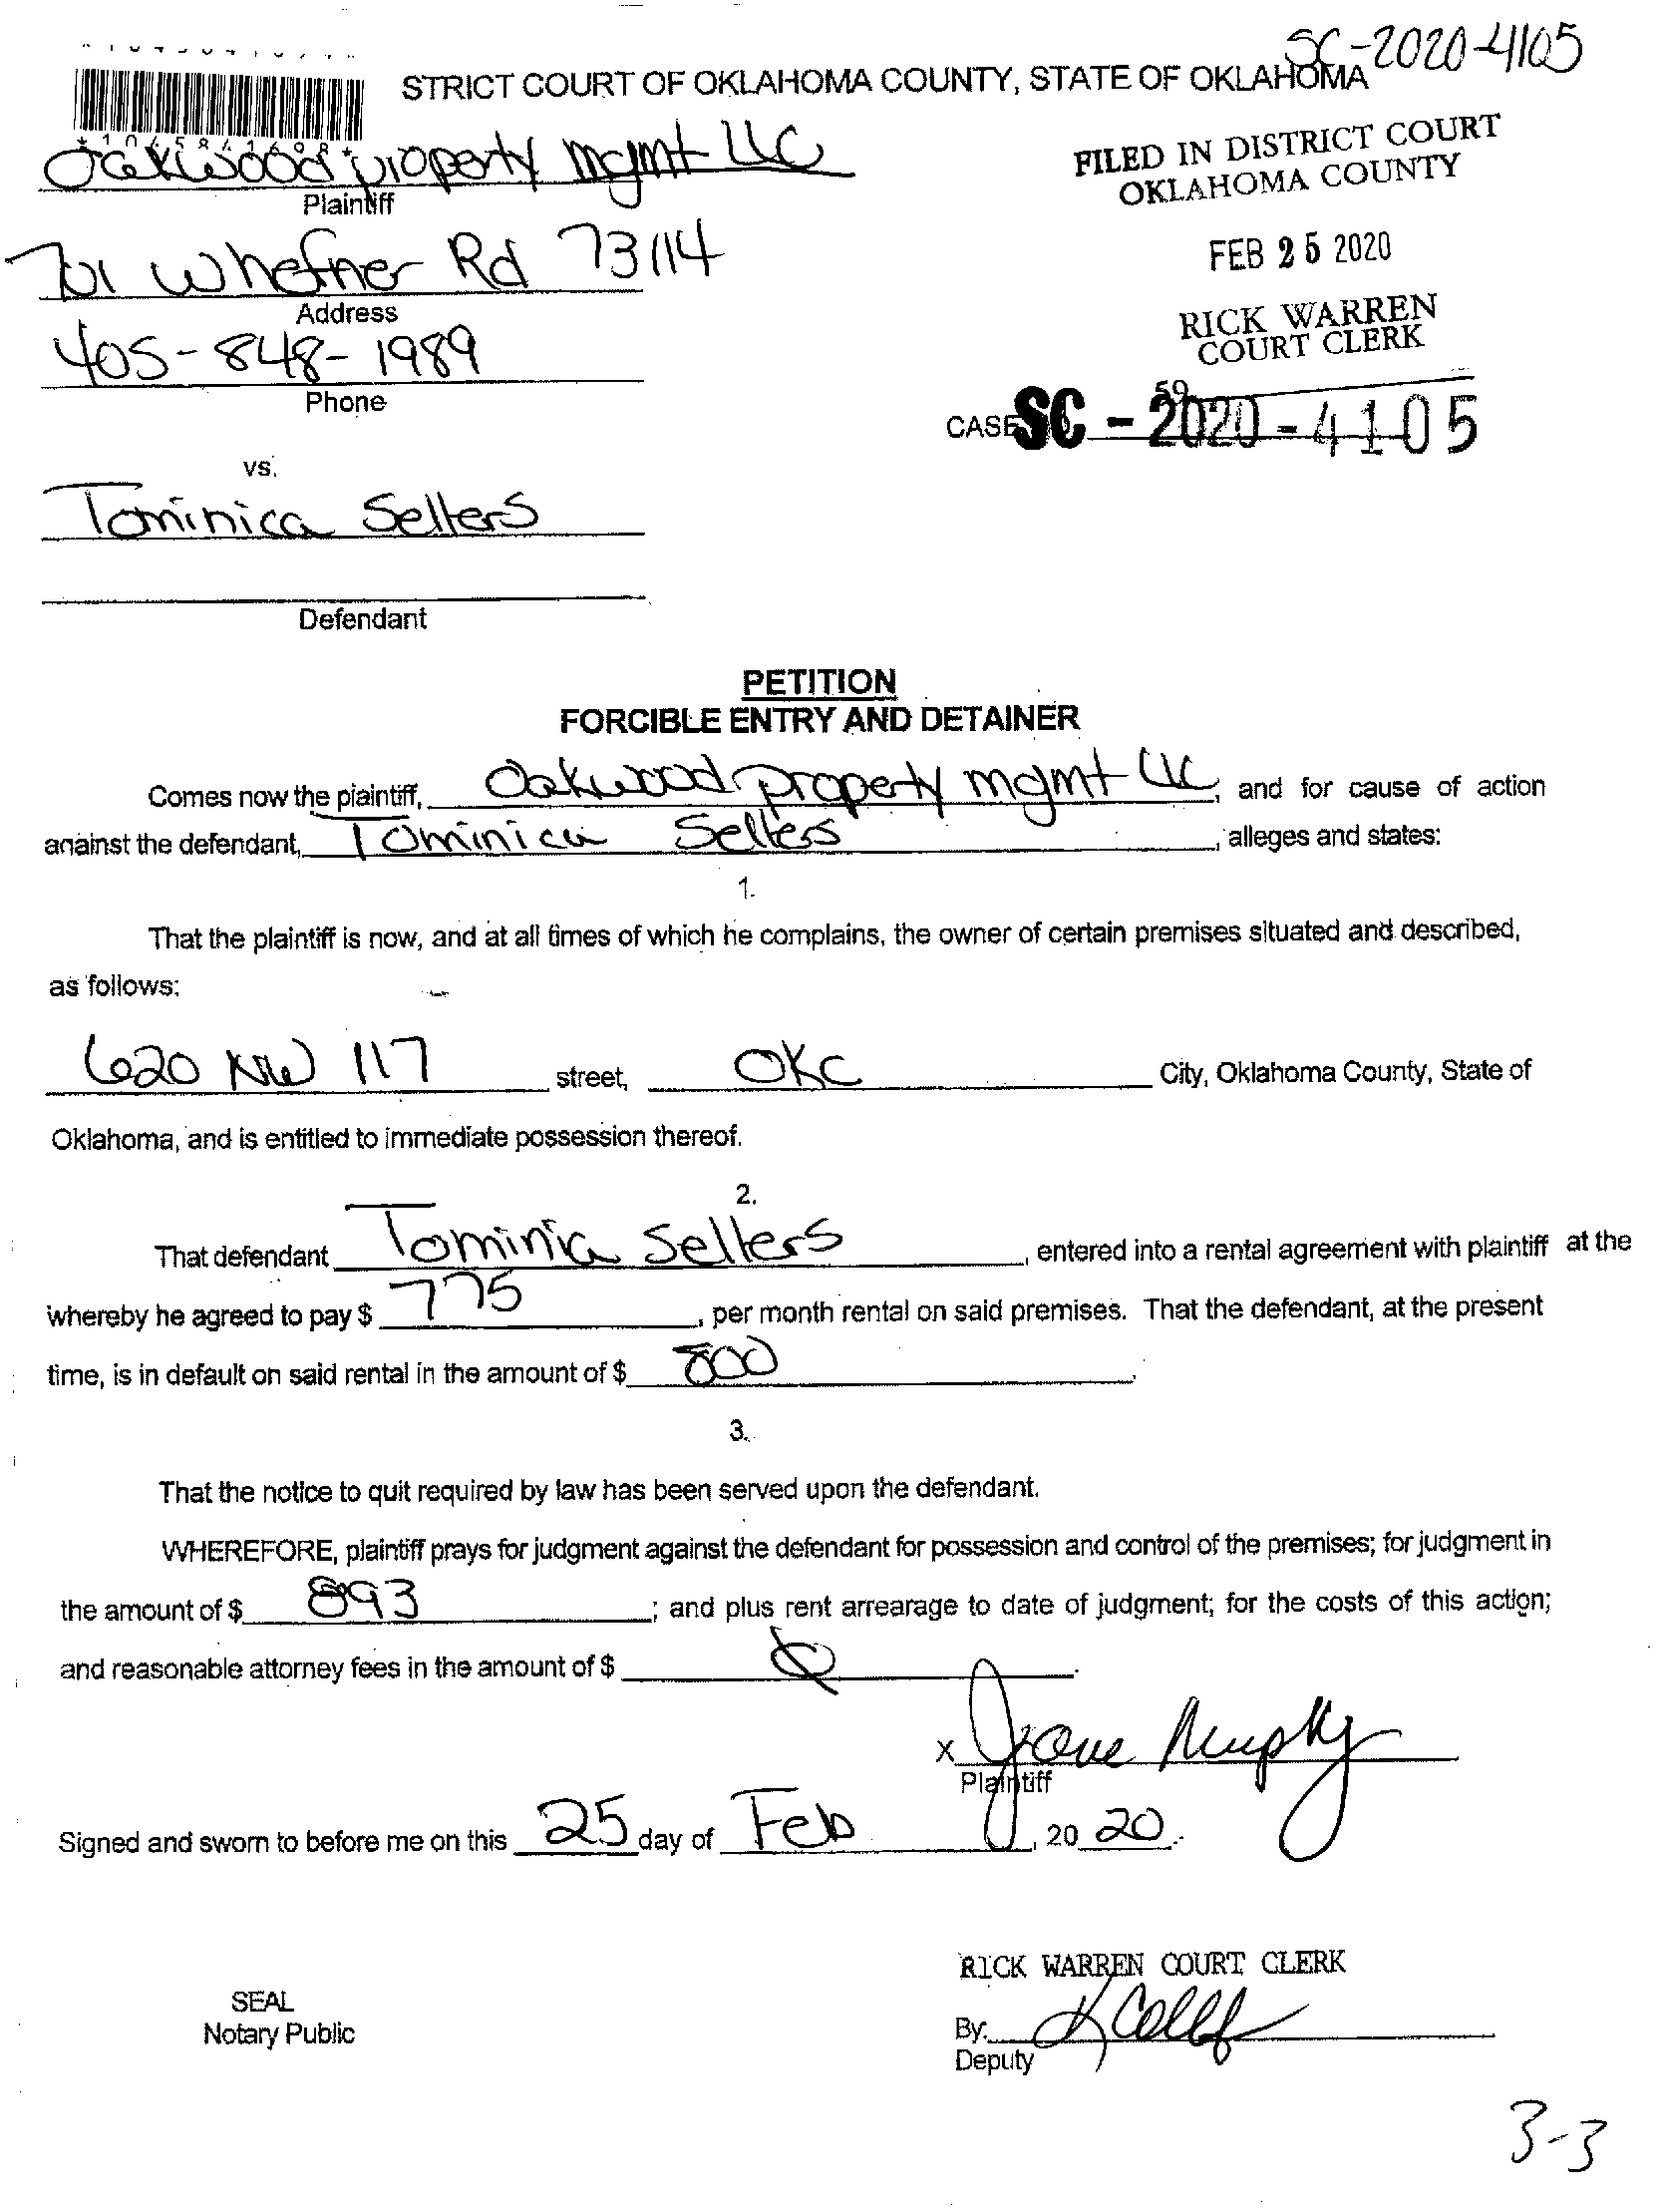 SC-2020-4105
STRICT COURT OF OKLAHOMA COUNTY, STATE OF OKLAHOMA
Oakwood property mgmt LLC
Plaintiff
FILED IN DISTRICT COURT
OKLAHOMA COUNTY
701 W hefner Rd 73114
Address
FEB 25 2020
405-848-1989
Phone
RICK WARREN
COURT CLERK
59
CASE SC - 2020 - 4105
vs.
Tominica Sellers
Defendant
PETITION
FORCIBLE ENTRY AND DETAINER
Comes now the plaintiff, Oakwood property mgmt LLC, and for cause of action
against the defendant, Tominica Sellers, alleges and states:
1.
That the plaintiff is now, and at all times of which he complains, the owner of certain premises situated and described,
as follows:
620 NW 117 street, OKC City, Oklahoma County, State of
Oklahoma, and is entitled to immediate possession thereof.
2.
That defendant Tominica Sellers, entered into a rental agreement with plaintiff at the
whereby he agreed to pay $ 775, per month rental on said premises. That the defendant, at the present
time, is in default on said rental in the amount of $ 800.
3.
That the notice to quit required by law has been served upon the defendant.
WHEREFORE, plaintiff prays for judgment against the defendant for possession and control of the premises; for judgment in
the amount of $ 893; and plus rent arrearage to date of judgment; for the costs of this action;
and reasonable attorney fees in the amount of $ 0.
X Jane Murphy
Plaintiff
Signed and sworn to before me on this 25 day of Feb, 20 20.
RICK WARREN COURT CLERK
SEAL
Notary Public
By:
Deputy
3-3